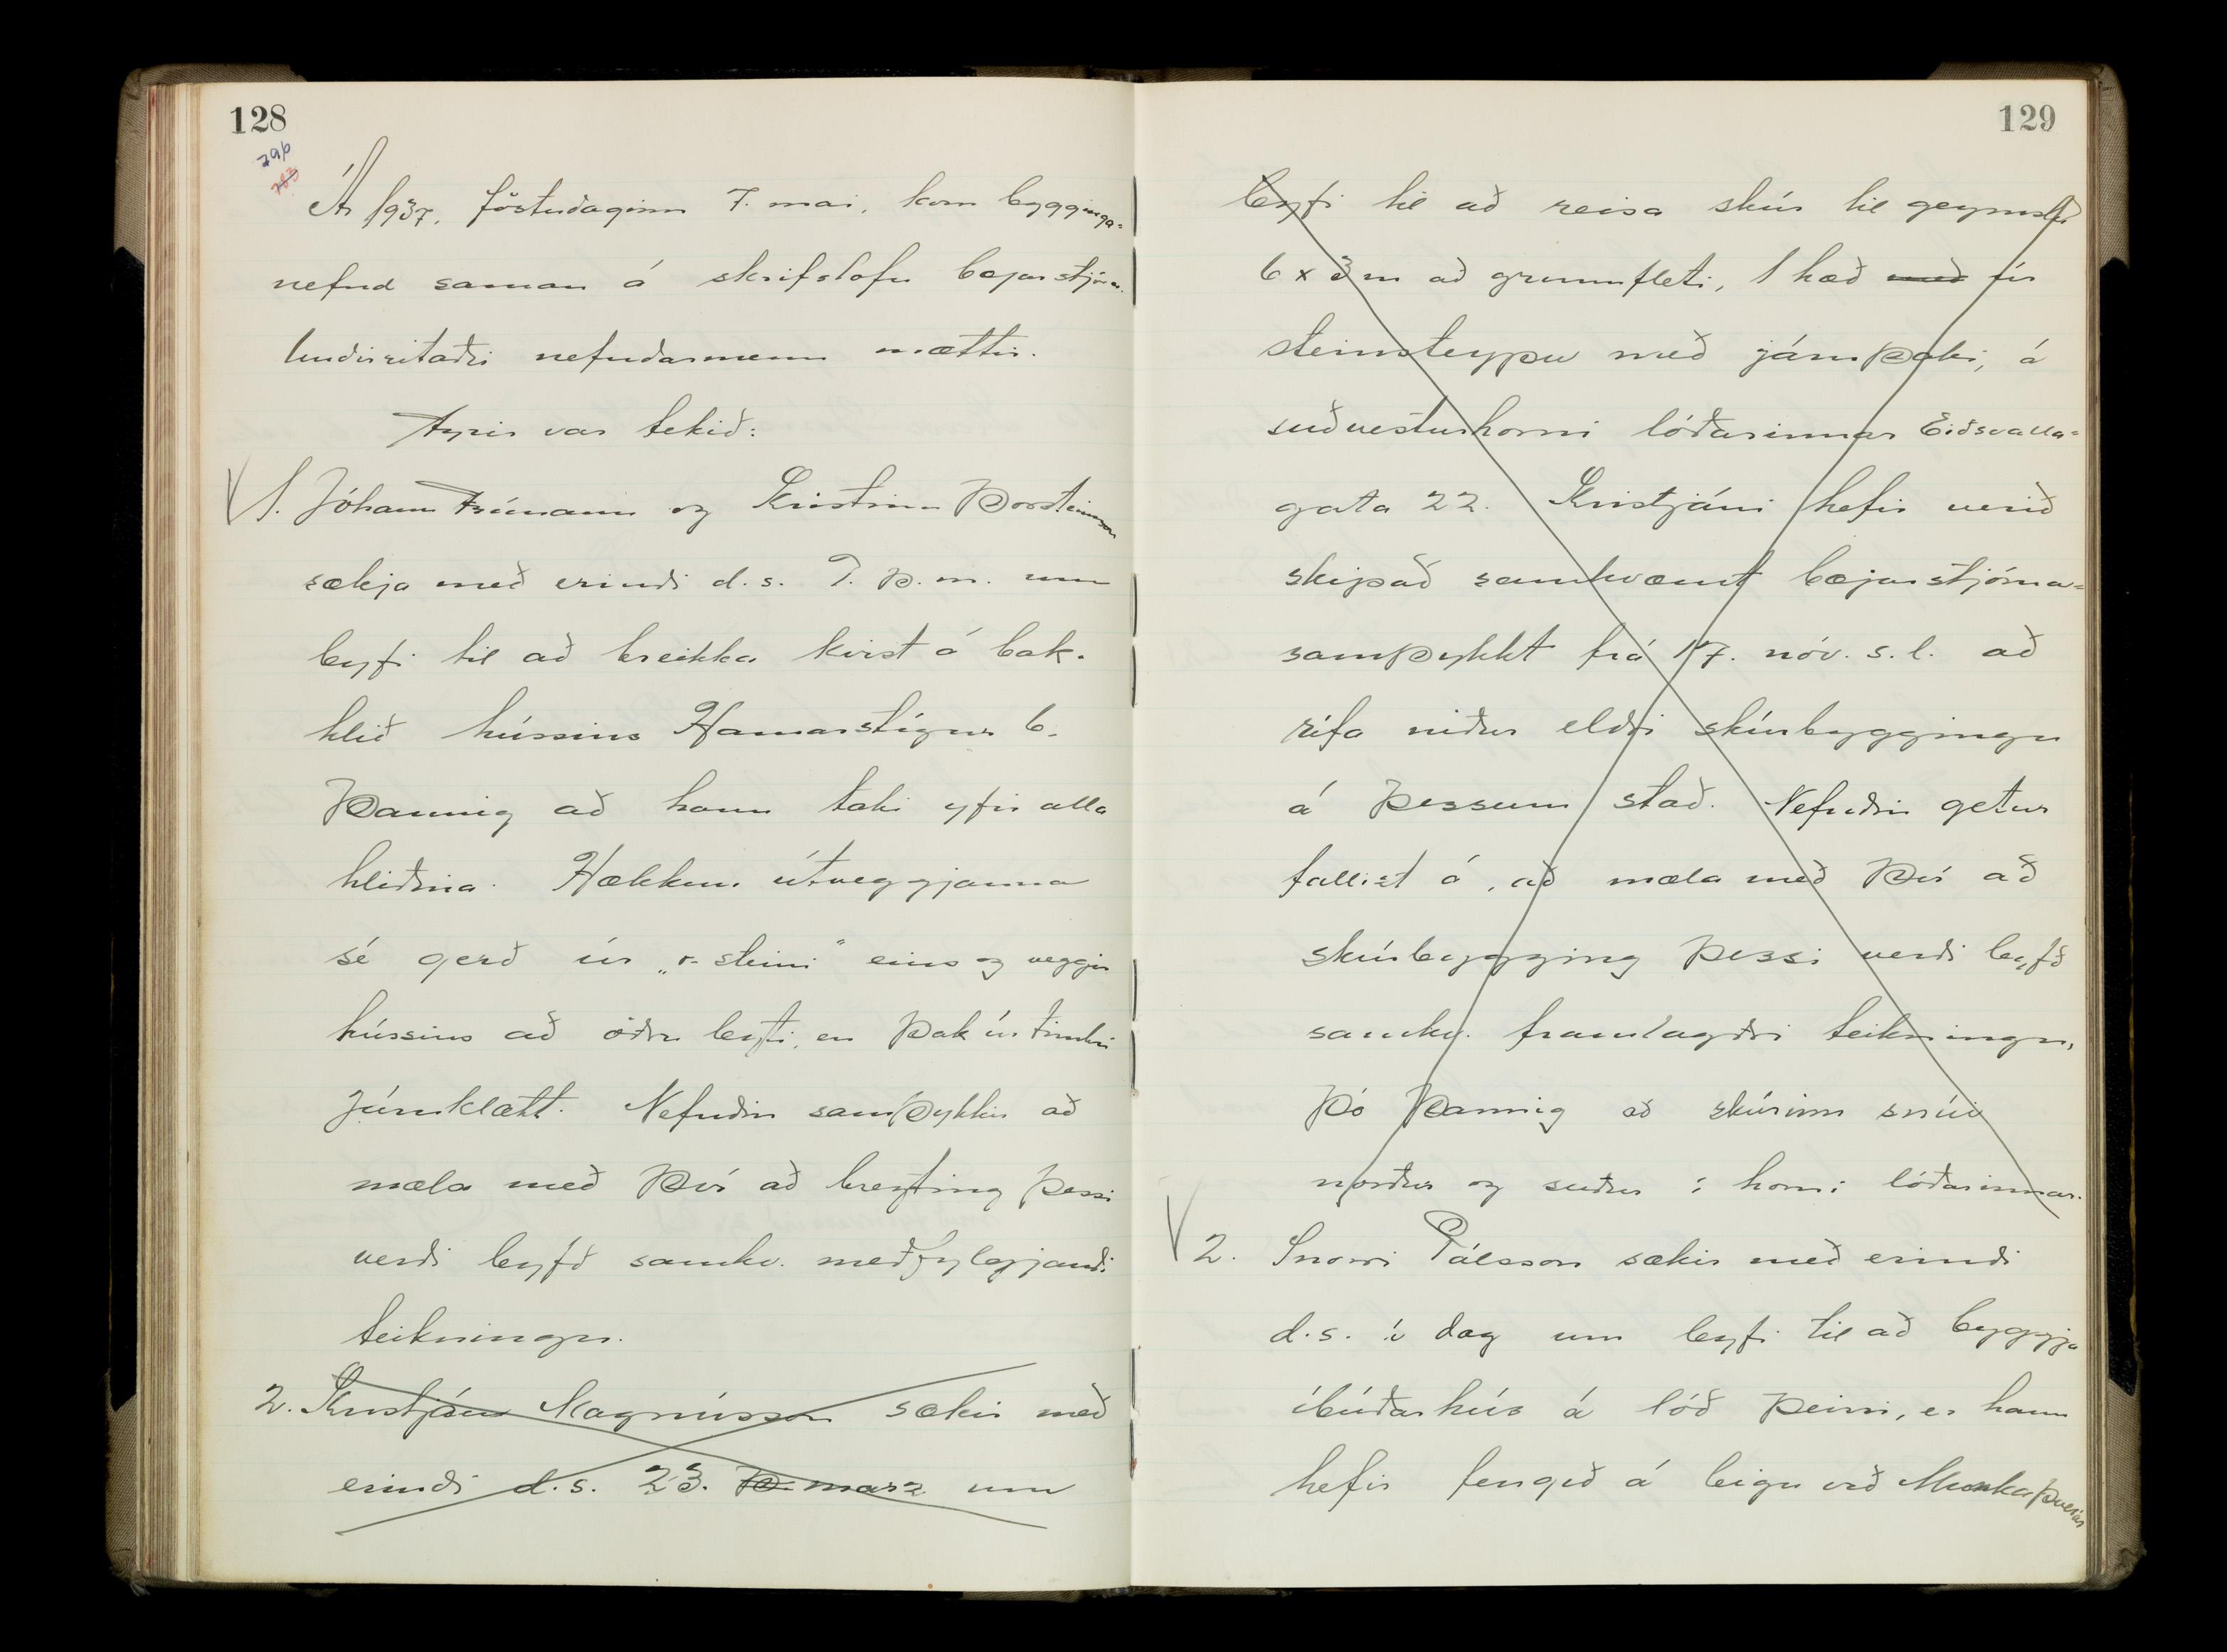 128
296
283
Ár 1937, föstudaginn 7. mai, kom bygginga-
nefnd saman á skrifstofu bæjarstjóra.
Undirritaðri nefndarmenn mættir.
Fyrir var tekið:
1. Jóhann Frímann og Kristinn Þorsteinsson
sækja með erindi d.s. 7. þ.m. um
leyfi til að breikka kvist á bak-
hlið hússins Hamarstígur 6.
Þannig að hann taki yfir alla
hliðina. Hækkun útveggjanna
sé gerð úr „r-steini" eins og veggir
hússins að öðru leyti, en þak úr timbri
járnklætt. Nefndin samþykkir að
mæla með því að breyting þessi
verði leyfð samkv. meðfylgjandi
teikningu.
2. Kristján Magnússon sækir með
erindi d.s. 23. þ. marz um
129
leyfi til að reisa skúr til geymslu
6 x 3 m að grunnfleti, 1 hæð með úr
steinsteypu með járnþaki, á
suðvesturhorni lóðarinnar Eiðsvalla-
gata 22. Kristjáni hefir verið
skipað samkvæmt bæjarstjórna-
samþykkt frá 17. nóv. s.l. að
rífa niður eldri skúrbyggingu
á þessum stað. Nefndin getur
fallist á, að mæla með því að
skúrbygging þessi verði leyfð
samkv. framlagðri teikningu,
þó þannig að skúrinn snúi
norður og suður í horni lóðarinnar.
2. Snorri Pálsson sækir með erindi
d.s. í dag um leyfi til að byggja
íbúðarhús á lóð þeirri, er hann
hefir fengið á leigu við Munkaþverár